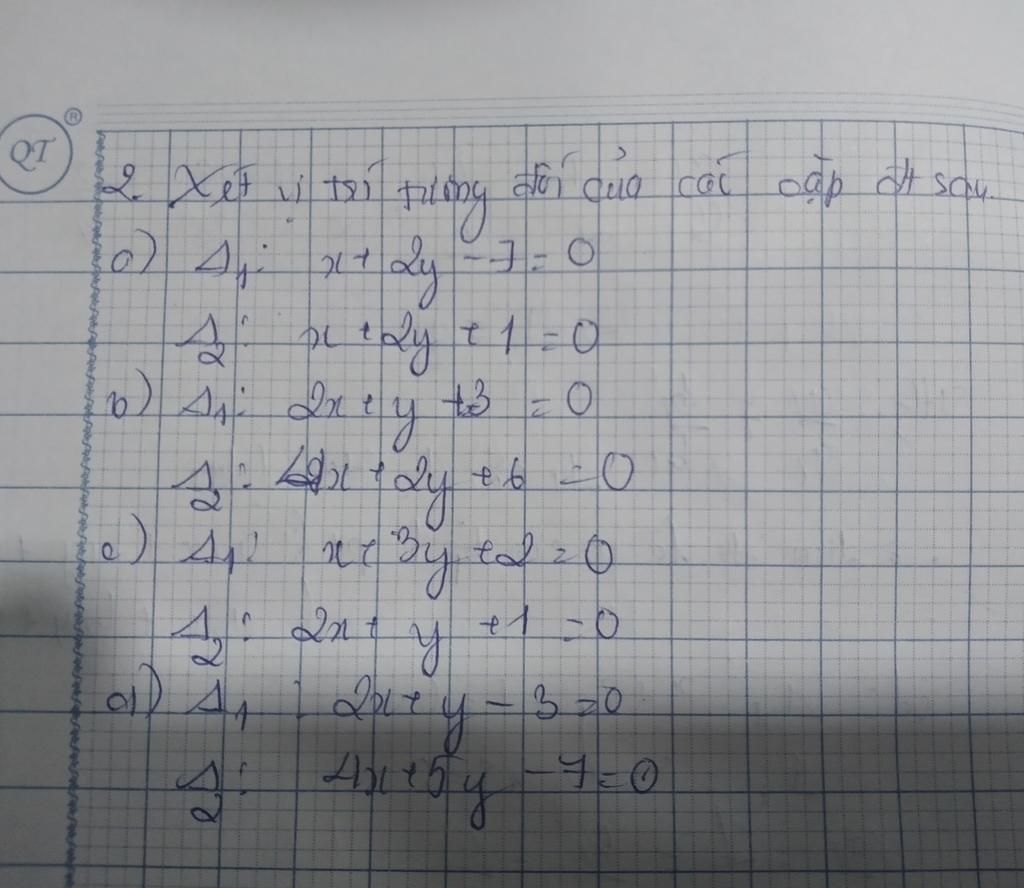 QT ®
2. Xét vị trí tương đối của các cặp đt sau.
a) Δ₁: x + 2y - 7 = 0
Δ₂: x + 2y + 1 = 0
b) Δ₁: 2x + y + 3 = 0
Δ₂: x + 2y + 6 = 0
c) Δ₁: x + 3y + 2 = 0
Δ₂: 2x + y + 1 = 0
d) Δ₁: 2x + y - 3 = 0
Δ₂: 4x + 5y - 7 = 0